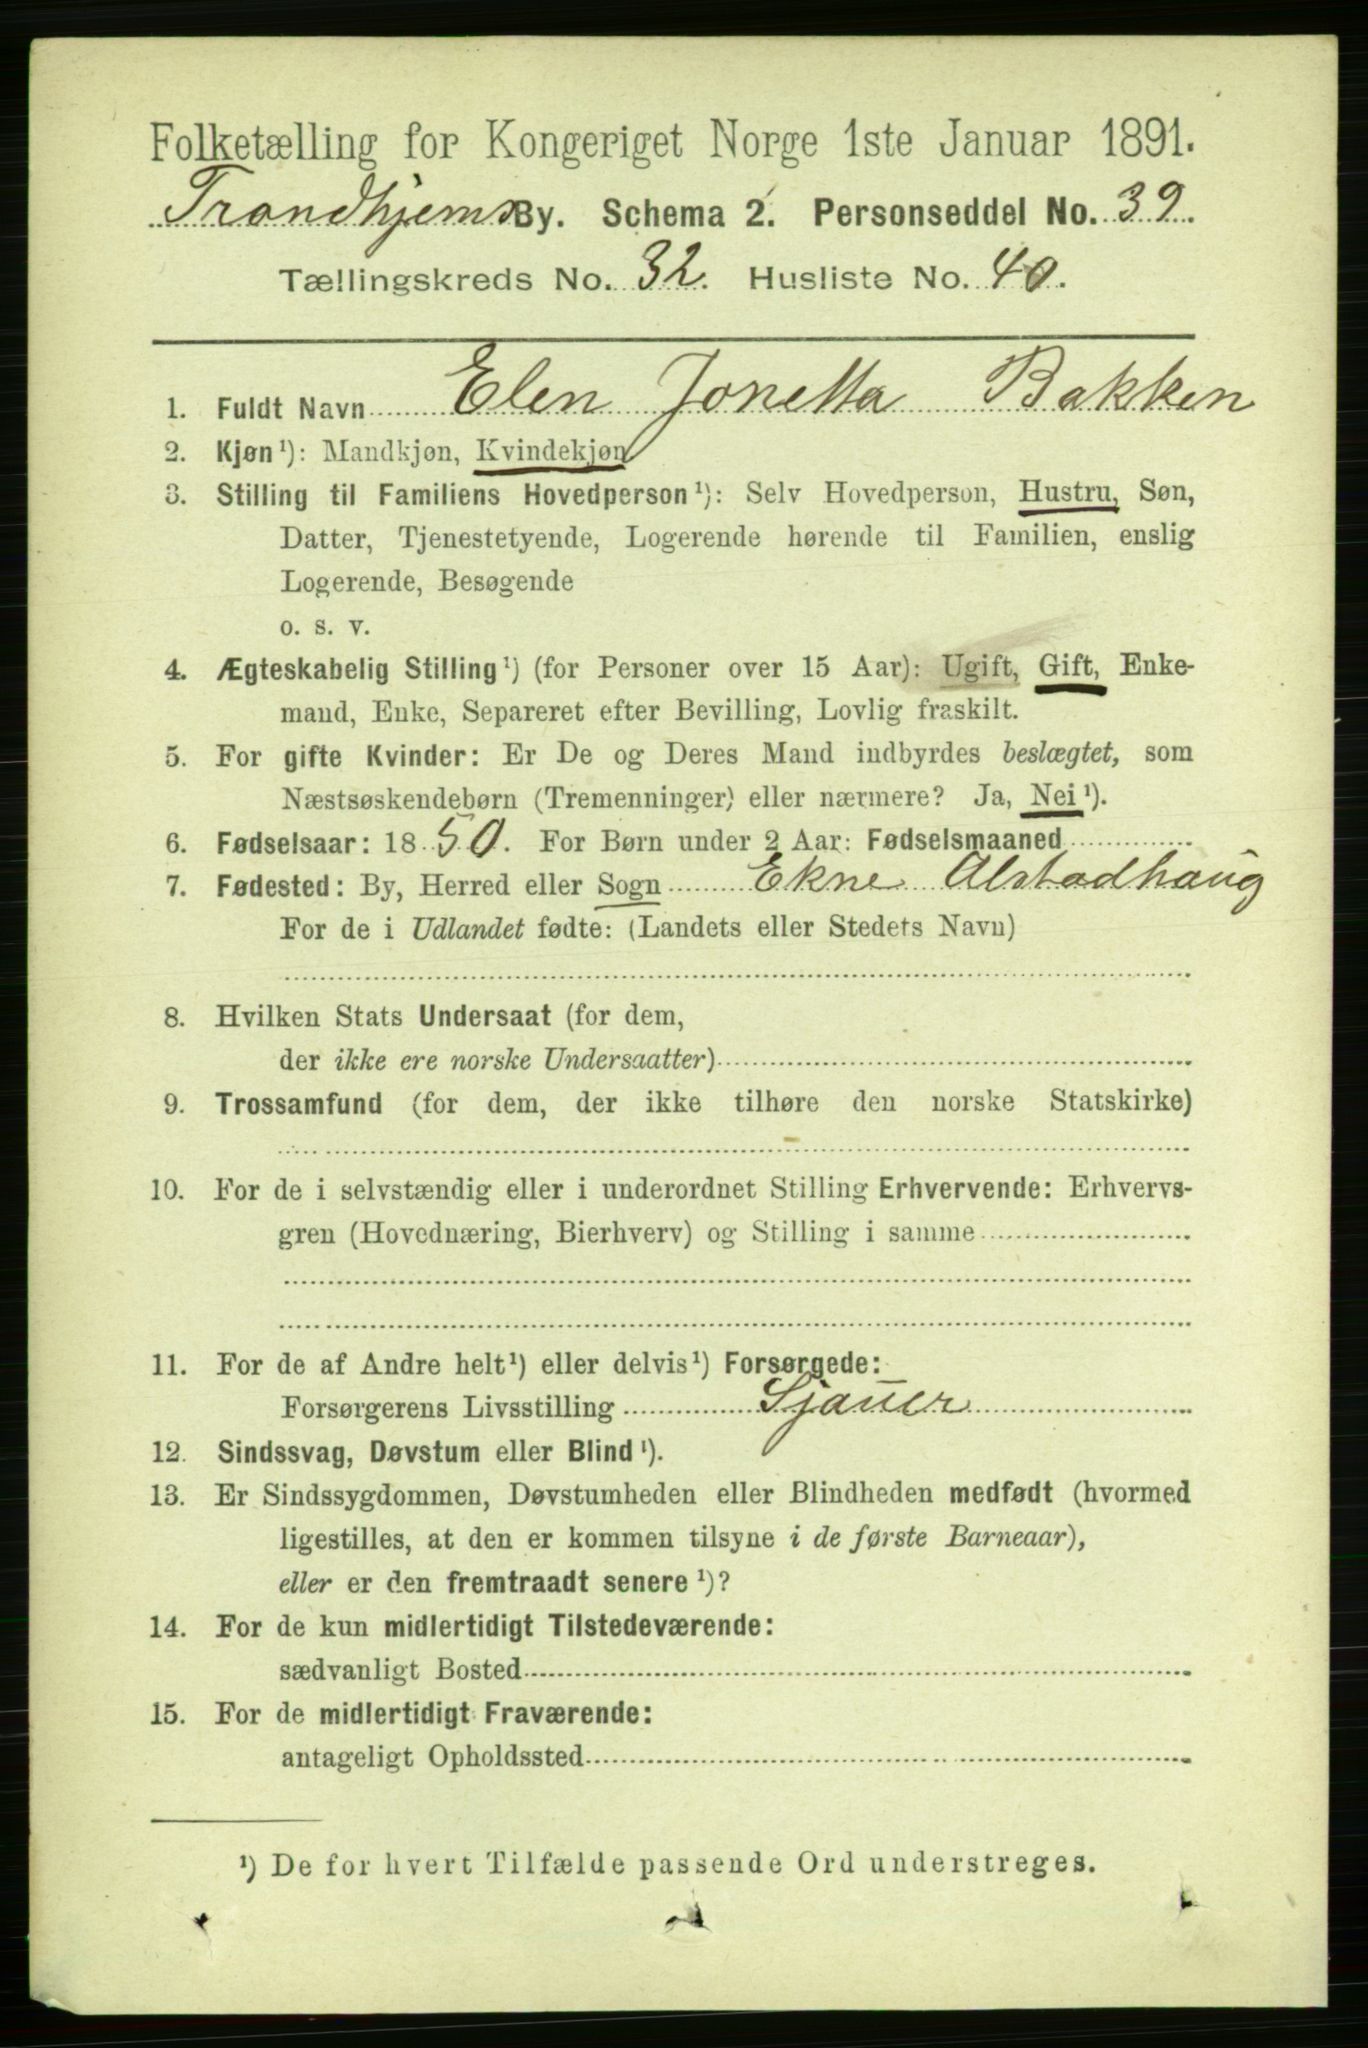 Folketælling for Kongeriget Norge 1ste Januar 1891.
Trondhjems By. Schema 2. Personseddel No. 39.
Tællingskreds No. 32. Husliste No. 40.
1. Fuldt Navn Elen Jonetta Bakken
2. Kjøn¹): Mandkjøn, Kvindekjøn
3. Stilling til Familiens Hovedperson¹): Selv Hovedperson, Hustru, Søn,
Datter, Tjenestetyende, Logerende hørende til Familien, enslig
Logerende, Besøgende
o. s. v.
4. Ægteskabelig Stilling¹) (for Personer over 15 Aar): Ugift, Gift, Enke-
mand, Enke, Separeret efter Bevilling, Lovlig fraskilt.
5. For gifte Kvinder: Er De og Deres Mand indbyrdes beslægtet, som
Næstsøskendebørn (Tremenninger) eller nærmere? Ja, Nei¹).
6. Fødselsaar: 1850. For Børn under 2 Aar: Fødselsmaaned
7. Fødested: By, Herred eller Sogn Ekne Alstadhaug
For de i Udlandet fødte: (Landets eller Stedets Navn)
8. Hvilken Stats Undersaat (for dem,
der ikke ere norske Undersaatter)
9. Trossamfund (for dem, der ikke tilhøre den norske Statskirke)
10. For de i selvstændig eller i underordnet Stilling Erhvervende: Erhvervs-
gren (Hovednæring, Bierhverv) og Stilling i samme
11. For de af Andre helt¹) eller delvis¹) Forsørgede:
Forsørgerens Livsstilling Sjauer
12. Sindssvag, Døvstum eller Blind¹).
13. Er Sindssygdommen, Døvstumheden eller Blindheden medfødt (hvormed
ligestilles, at den er kommen tilsyne i de første Barneaar),
eller er den fremtraadt senere¹)?
14. For de kun midlertidigt Tilstedeværende:
sædvanligt Bosted
15. For de midlertidigt Fraværende:
antageligt Opholdssted
¹) De for hvert Tilfælde passende Ord understreges.